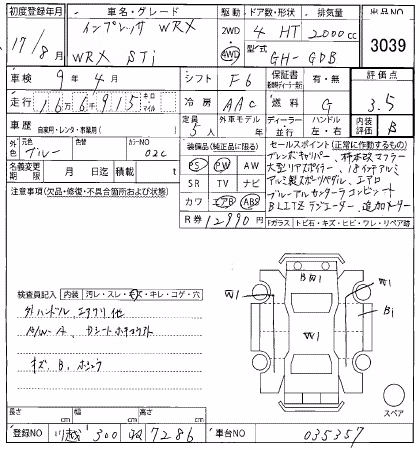 初度登録年月 車名・グレード 駆動 ドア数・形状 排気量 出品NO
17/8月 インプレッサ WRX 2WD 4 HT 2000cc 3039
WRX STi 4WD 型式 GH-GDB
車検 9年4月 シフト F6 保証書 有・無 評価点
走行 166,915 キロ・マイル 冷房 AAC 燃料 G 3.5
車歴 自家用・レンタ・事業用( ) 定員 5人 外車モデル年 ディーラー 並行 ハンドル 左・右 内装評価 B
色 ブルー 色替 カラーNO 02C 装備品(純正品に限る) セールスポイント(正常に作動するもの)
名義変更期限 月 日 迄 積載 t PS PW AW ブレンボキャリパー、柿本改マフラー
注意事項(欠品・修復・不具合箇所および状態) SR TV ナビ 大型リアスポイラー、18インチアルミ
カワ エアB ABS アルミ製スポーツペダル、エアロ
R券 12990円 ブルーアルカンターラコンビシート
BLITZラジエーター、追加メーター
Fガラス トビ石・キズ・ヒビ・ワレ・リペア跡
検査員記入 内装 汚レ・スレ・キズ・キレ・コゲ・穴
外ハンドル、エアクリ他
A/W-A、
キズ、B、
W1
BW1
W1
B1
スペア
長さ cm 幅 cm 高さ cm
登録NO 川越 300 7286 車台NO 035357